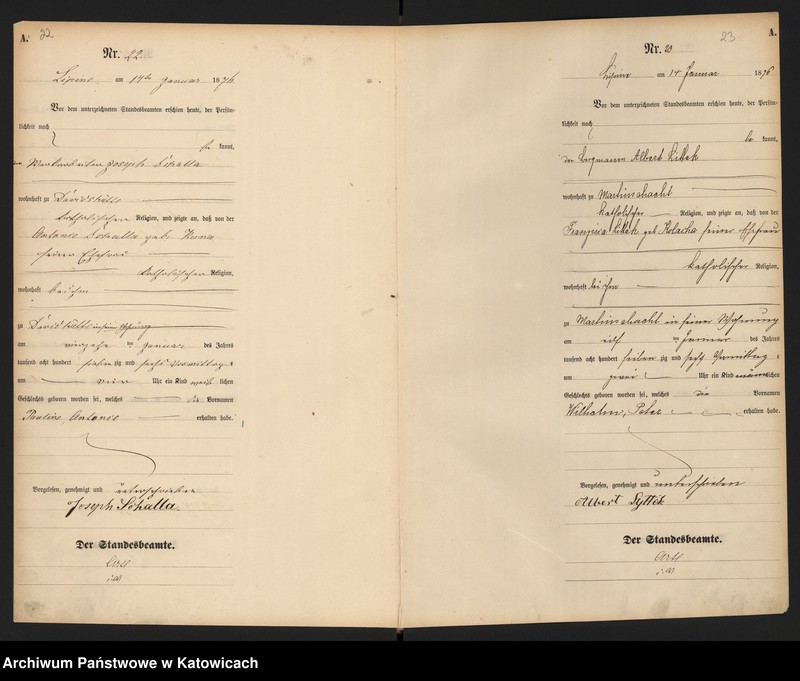 A. 22.
Nr. 22.
Lipine am 14ten Januar 1876.
Vor dem unterzeichneten Standesbeamten erschien heute, der Persön-
lichkeit nach
be kannt,
Joseph Schatta
wohnhaft zu Davidhütte
katholischer Religion, und zeigte an, daß von der
Antonie Schatta geb.
seiner Ehefrau
katholischer Religion,
wohnhaft bei ihm
zu Davidhütte in seiner Wohnung
am Januar des Jahres
tausend acht hundert sieben zig und sechs Vormittag s
um vier Uhr ein Kind weib lichen
Geschlechts geboren worden sei, welches die Vornamen
Pauline, Antonie erhalten habe.
Vorgelesen, genehmigt und unterschrieben
Joseph Schatta.
Der Standesbeamte.
A. 23
Nr. 23
Lipine am 14 Januar 1876
Vor dem unterzeichneten Standesbeamten erschien heute, der Persön-
lichkeit nach
be kannt,
der Bergmann Albert Littek
wohnhaft zu Martinschacht
katholischer Religion, und zeigte an, daß von der
Franziska Littek geb Kolacha seiner Ehefrau
katholischer Religion,
wohnhaft bei ihm
zu Martinschacht in seiner Wohnung
am Januar des Jahres
tausend acht hundert sieben zig und sechs Vormittag s
um zwei Uhr ein Kind männlichen
Geschlechts geboren worden sei, welches die Vornamen
Wilhelm, Peter erhalten habe.
Vorgelesen, genehmigt und unterschrieben
Albert Lyttek
Der Standesbeamte.
Archiwum Państwowe w Katowicach